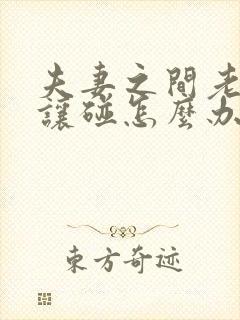 夫妻之間老
讓碰怎麼办
東方奇迹